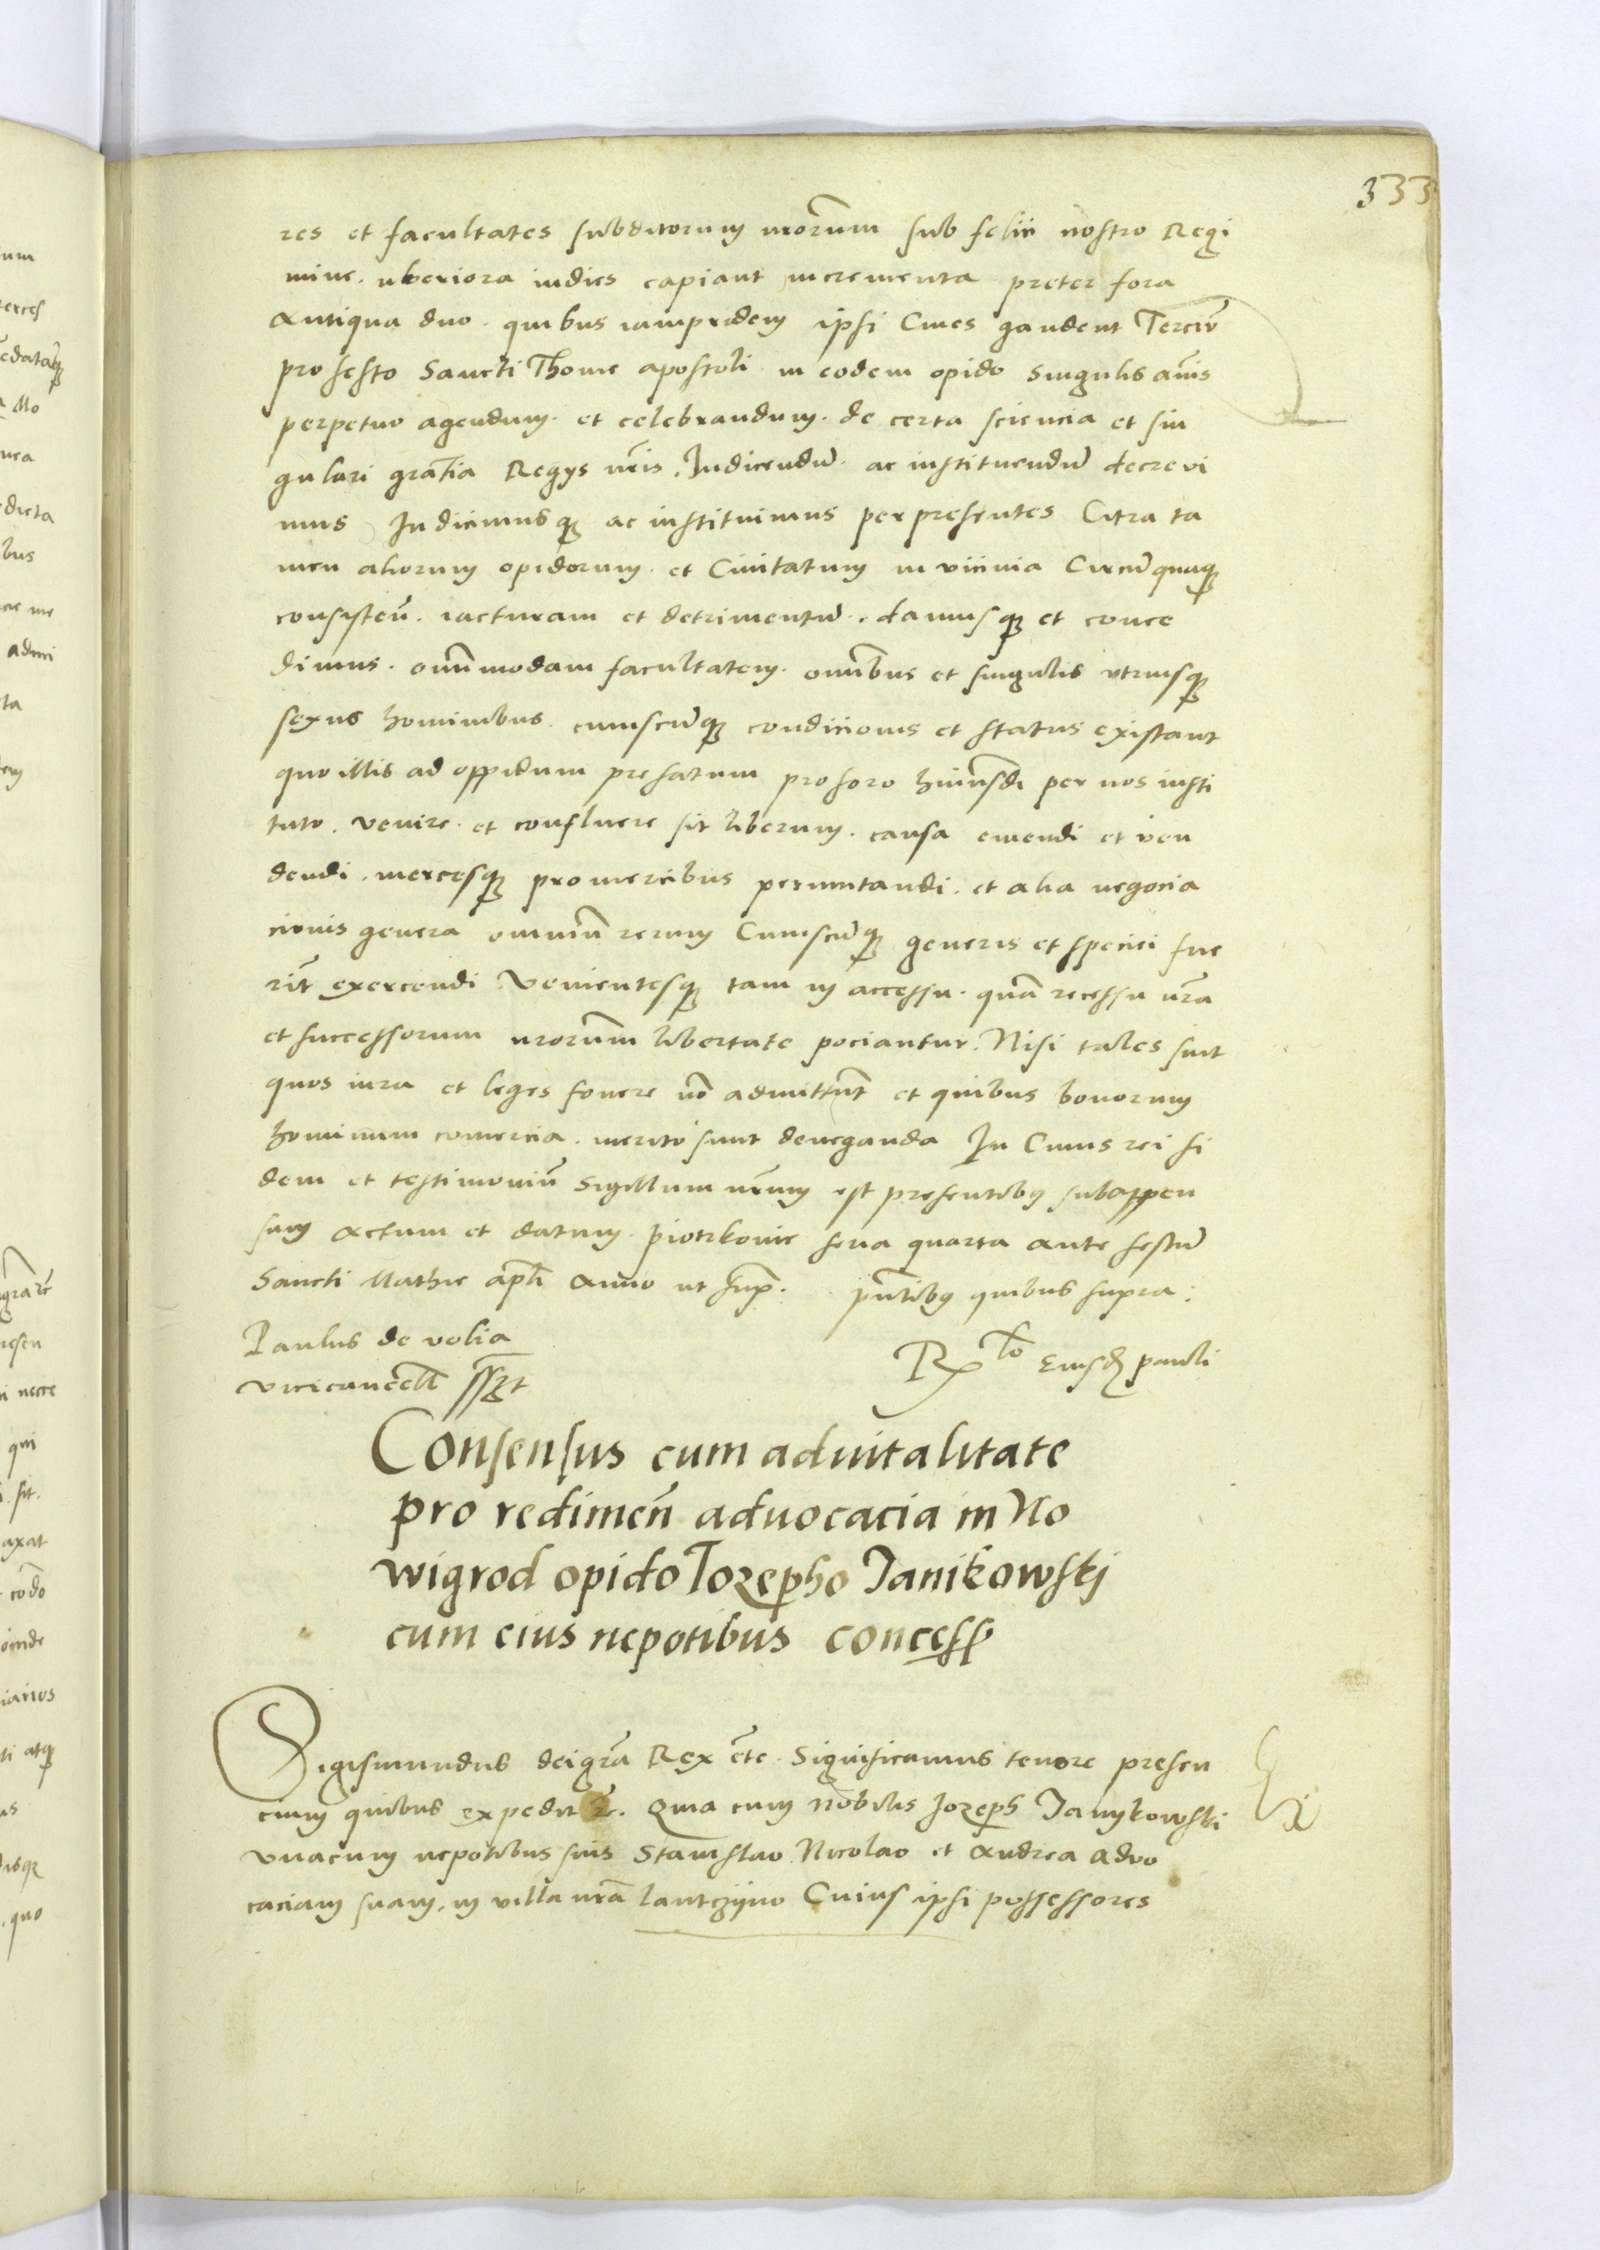 333
res et facultates subditorum nrorum sub felici nostro Regi
mine. uberiora indies capiant incrementa preter fora
Antiqua duo. quibus iampridem ipsi Cives gaudent Terciu
pro festo Sancti Thome apostoli in eodem opido singulis anis
perpetuo agendum. et celebrandum. de certa sciencia et sin
gulari gratia Regys nris. Indicendu. ac instituendu decrevi
mus Indicimusq ac instituimus per presentes Citra ta
men aliorum opidorum et Civitatum in vicinia Circuquaq
consisten. iacturam et detrimentu. damusq et conce
dimus. omnimodam facultatem. omnibus et singulis utriusq
sexus hominibus. cuiuscuq condicionis et status existant
quo illis ad oppidum prefatum pro foro huiusdi per nos insti
tuto. venire. et confluere sit liberum. causa emendi et ven
dendi. mercesq pro mercibus permutandi. et alia negocia
cionis genera omnium rerum Cuiuscuq generis et speciei fue
rit exercendi Venientesq tam in accessu. qua recessu nra
et successorum nrorum libertate pociantur. Nisi tales sint
quos iura et leges fovere no admittunt et quibus bonorum
hominum comercia. merito sunt deneganda In Cuius rei fi
dem et testimoniu Sigillum nrum est presentibus subappen
sum Actum et datum. piotrkovie feria quarta ante festu
Sancti Mathie apli Anno ut sup. pntibus quibus supra:
Paulus de volia
vicecancell sst
Rlo Eiusd pauli
Consensus cum advitalitate
pro redimen advocacia in No
wigrod opido Iozepho Ianikowski
cum eius nepotibus concess
Sigismundus dei gra Rex etc. Significamus tenore presen
cium quibus expedit Quia cum nobilis Iozeph Ianykowski
Unacum nepotibus suis Stanislao Nicolao et Andrea advo
caciam suam. in villa nra lantczyno Cuius ipsi possessores